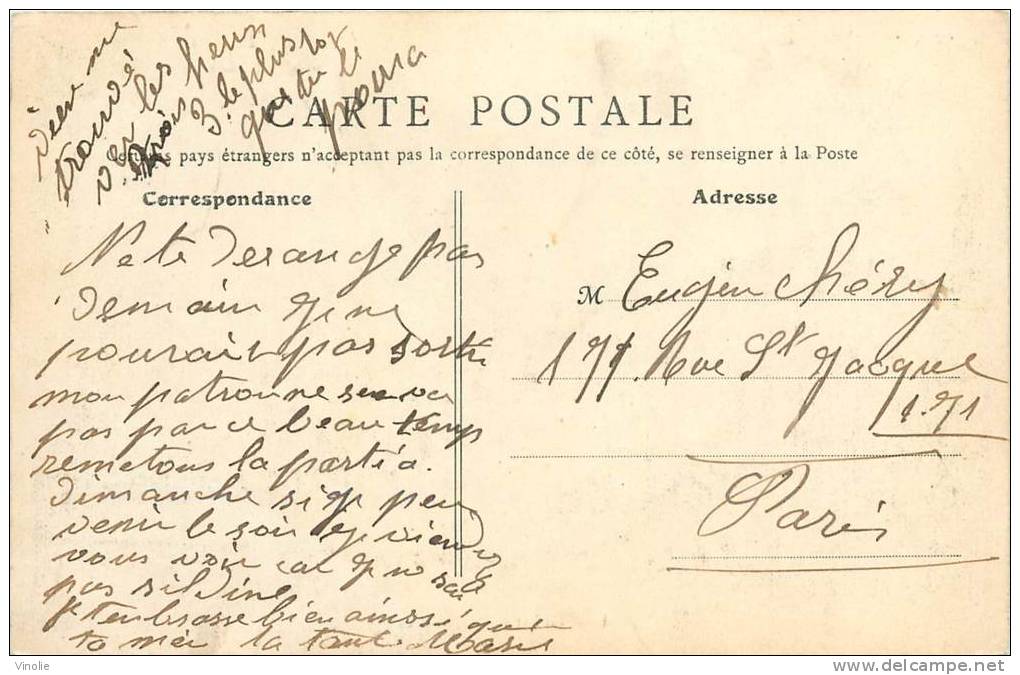 vien me
trouvé
ver les heur
trois
3. le plus tot
que tu le
poura
CARTE POSTALE
Certains pays étrangers n'acceptant pas la correspondance de ce côté, se renseigner à la Poste
Correspondance
Adresse
Ne te derange pas
demain je ne
pourait pas sortir
mon patronne sen va
pas par ce beau temps
remetons la partéa.
dimanche si je peu
venir le soir je viendré
vous voir car je ne sai
pas sil dine
Je tenbrasse bien ainssi que
ta mér ta tante Marie
M Eugén Méry
171. Rue St Jacques
171
Paris
Vinolie
http://www.delcampe.net